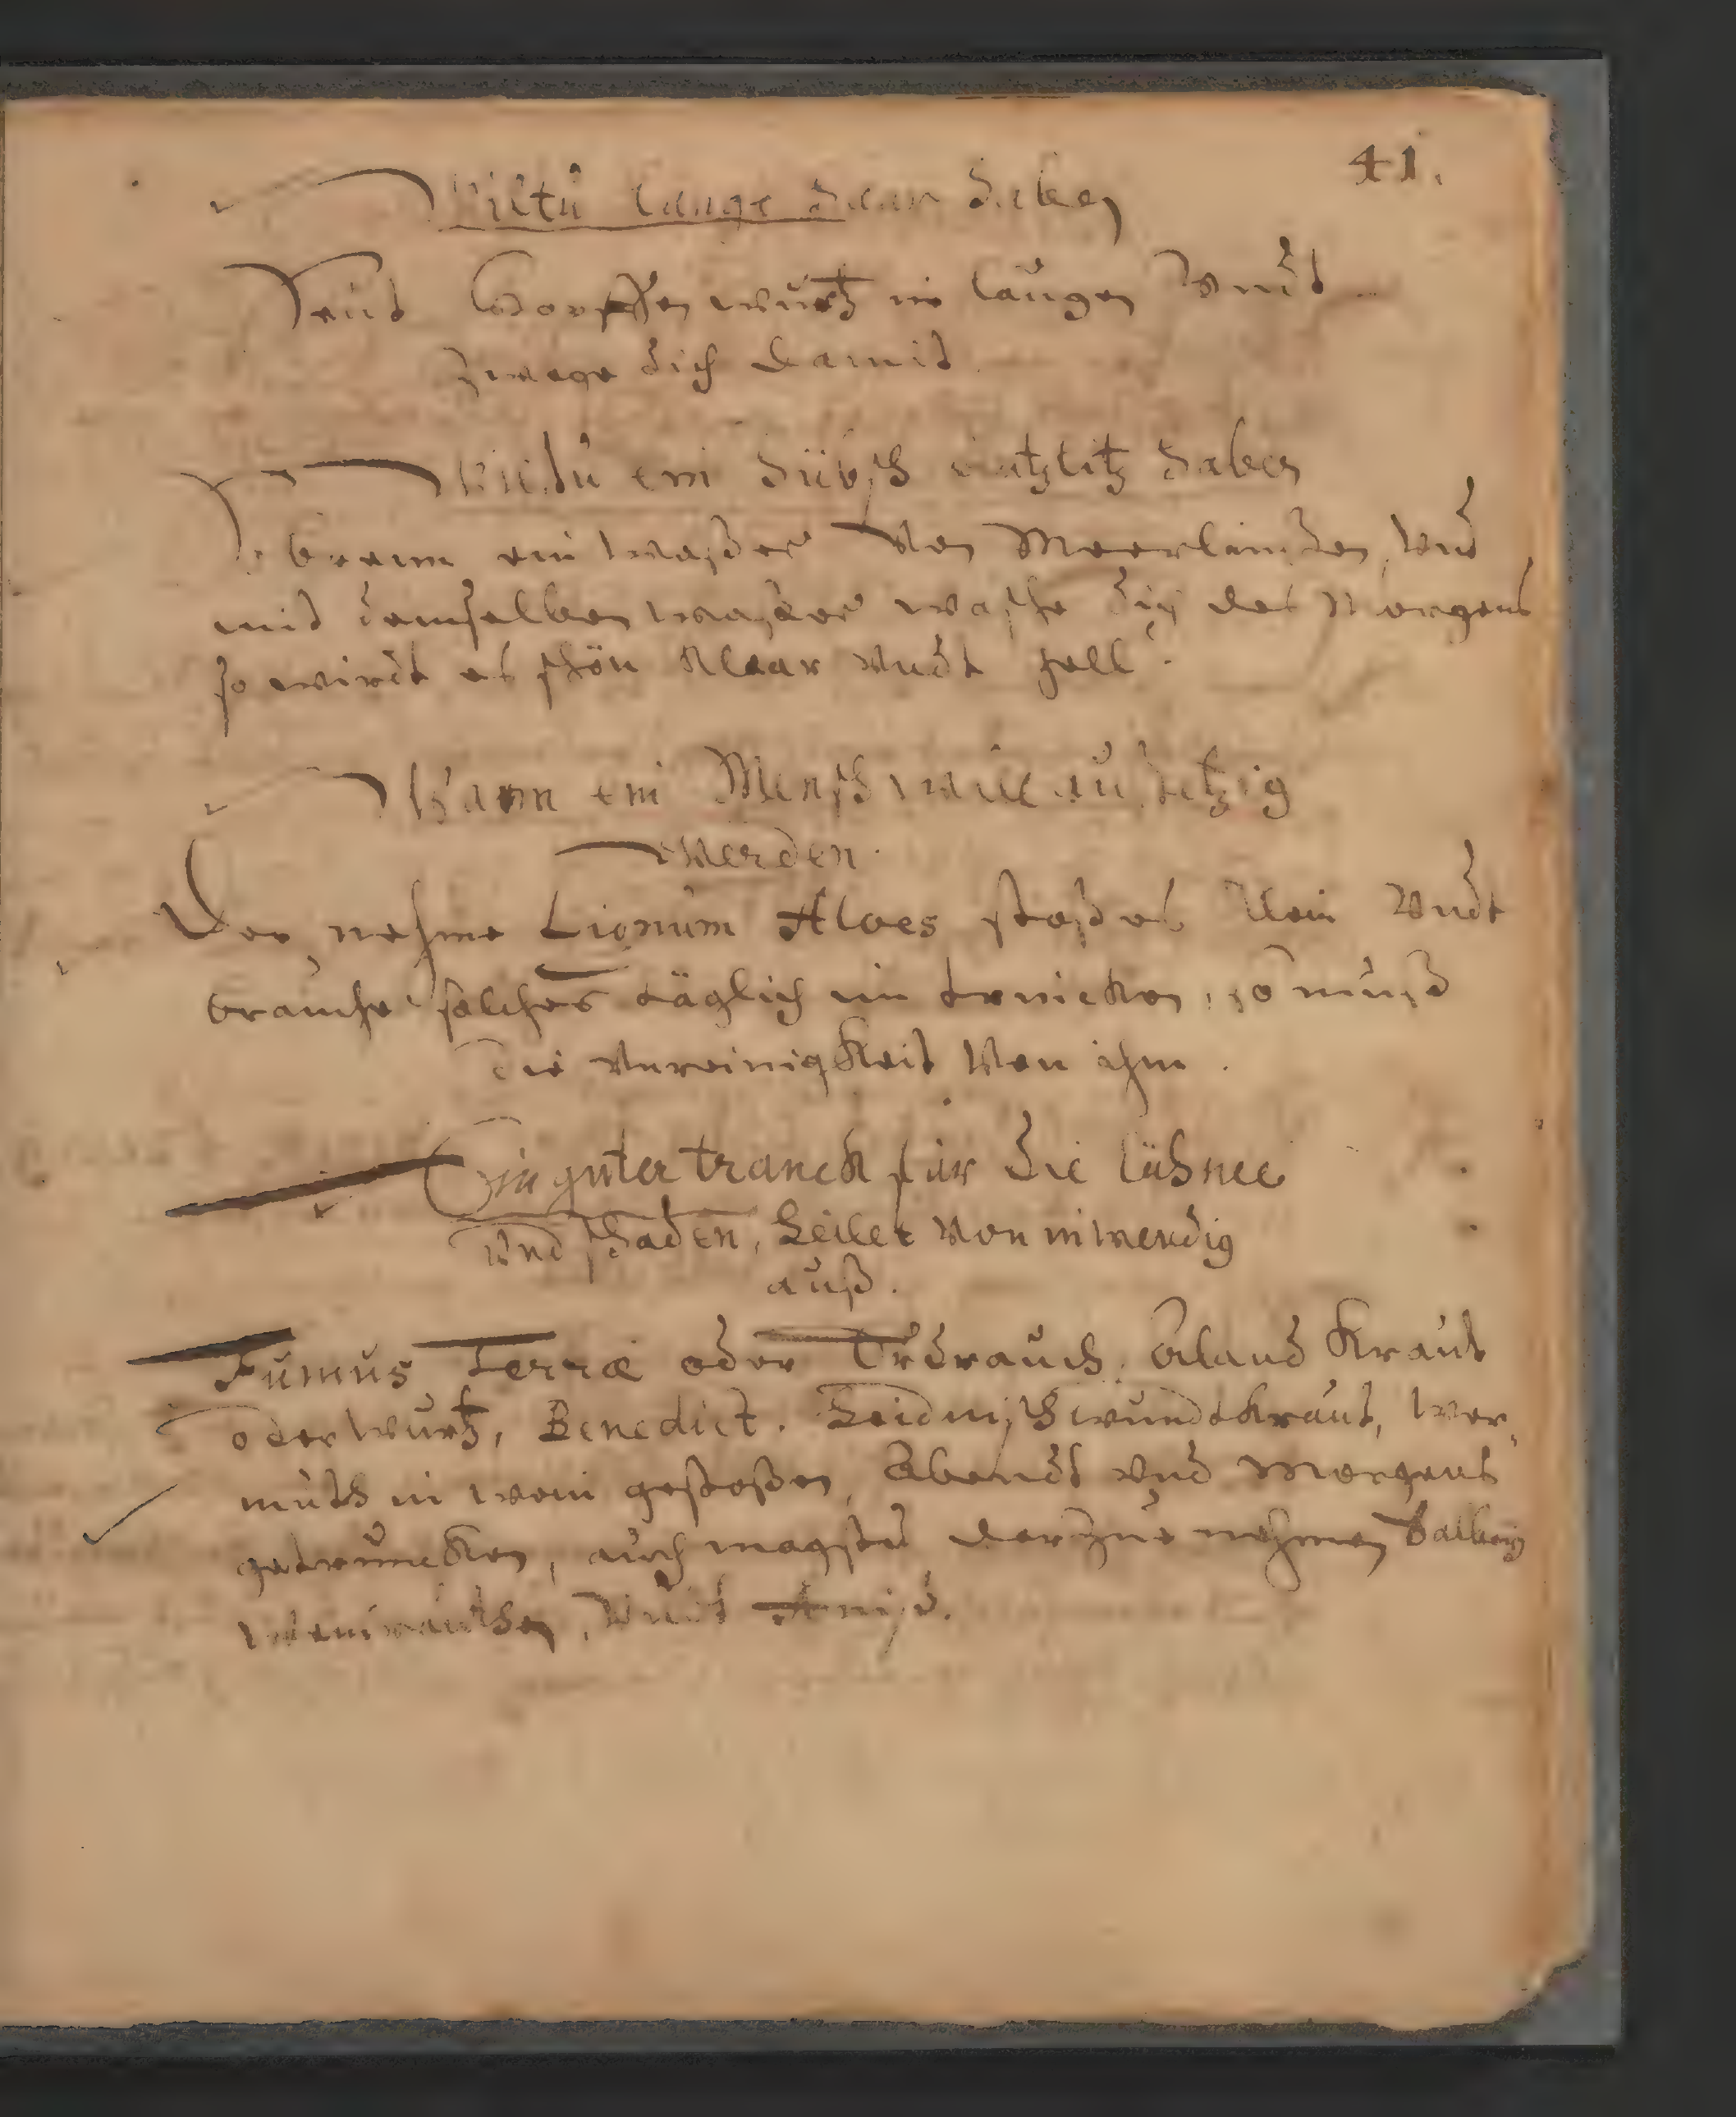 41.
Wiltu lange Haar haben
Seüd Hopffen wurtz in laugen Vndt
zwage dich damit.
Wiltu ein hübsch antzlitz haben
So brenn ein waßer Von Meerlinsen, Vnd
mit demselben waßer wasche dich des Morgens
so wirdt es schön Klaar Vndt hell.
Wann ein Mensch will außsetzig
werden.
Der nehme Lignum Aloes stoß es klein Vndt
brauche solches täglich im trincken, so muß
die Vnreinigkeit Von ihm.
Ein guter tranck für die lühnee
Vnd schaden, heilet Von inwendig
auß.
Fumus Terræ oder Erdrauch, Aland Kraut
oder wurtz, Benedict. Heidnischwundtkraut, wer,
muth in wein gestoßen, Abendt Vnd Morgens
getruncken, auch magstu darzue nehmen Salbey
weinrauthen, Vndt Aniß.